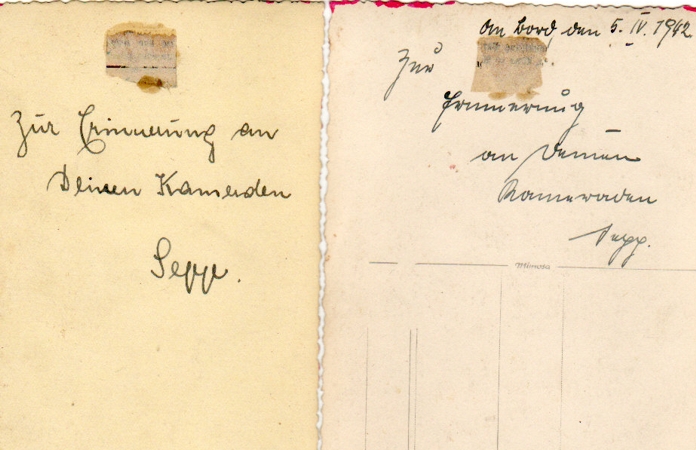 Zur Erinnerung an
Deinen Kameraden
Sepp.
An Bord, den 5. IV. 1942
Zur
Erinnerung
an Deinen
Kameraden
Sepp.
Mimosa